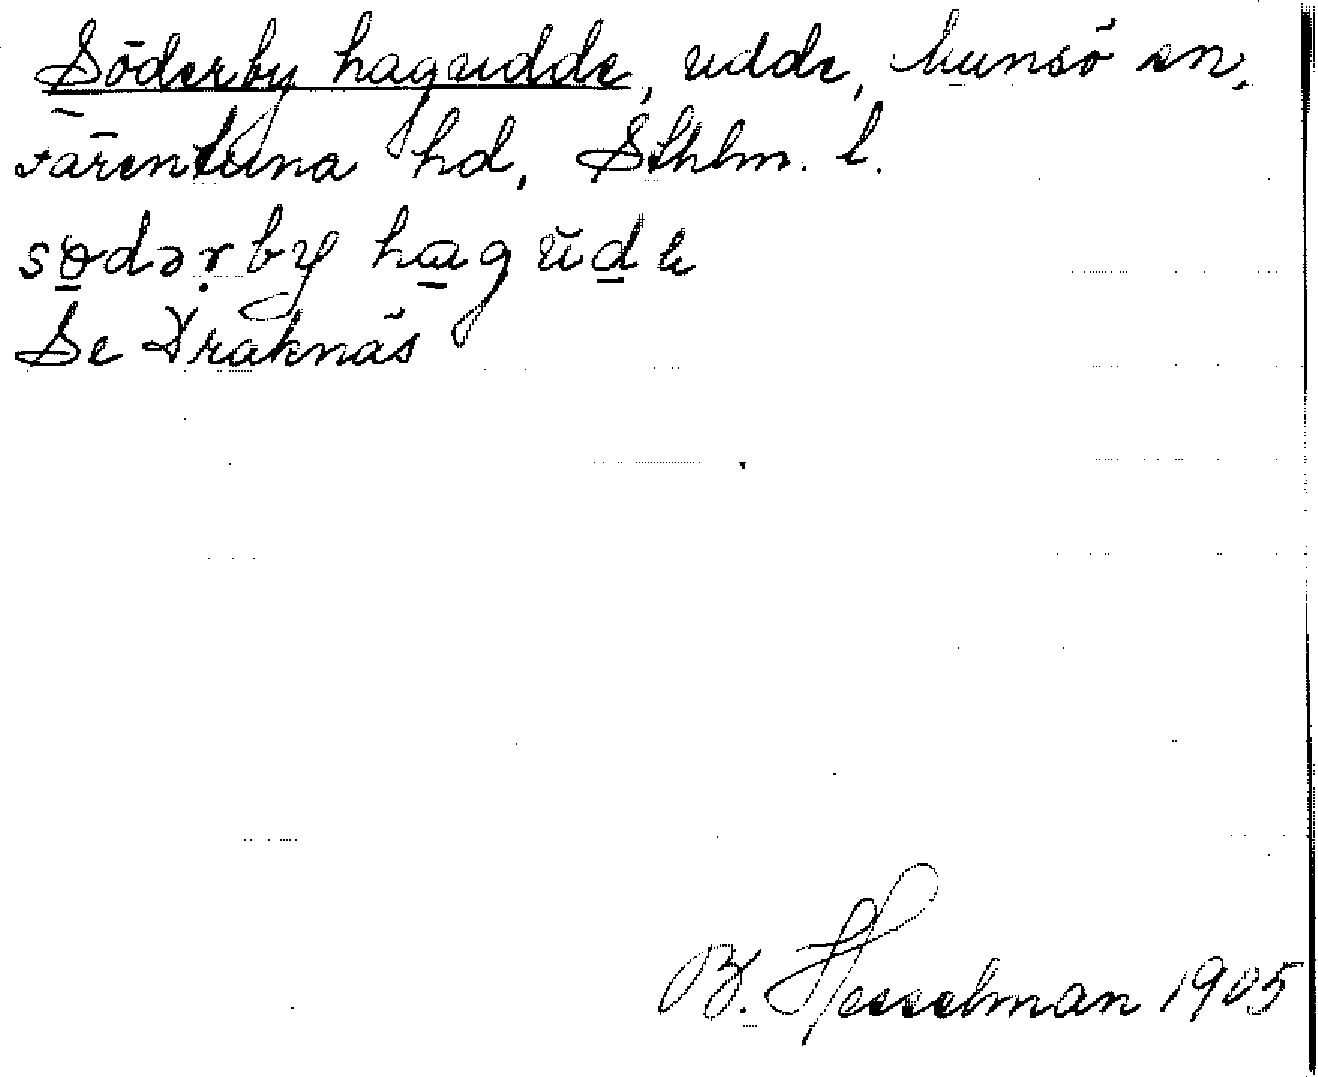 Söderby hagudde, udde, Munsö sn,
Färentuna hd, Sthlm. l.
södərby hagŭde
Se Draknäs
B. Hesselman 1905